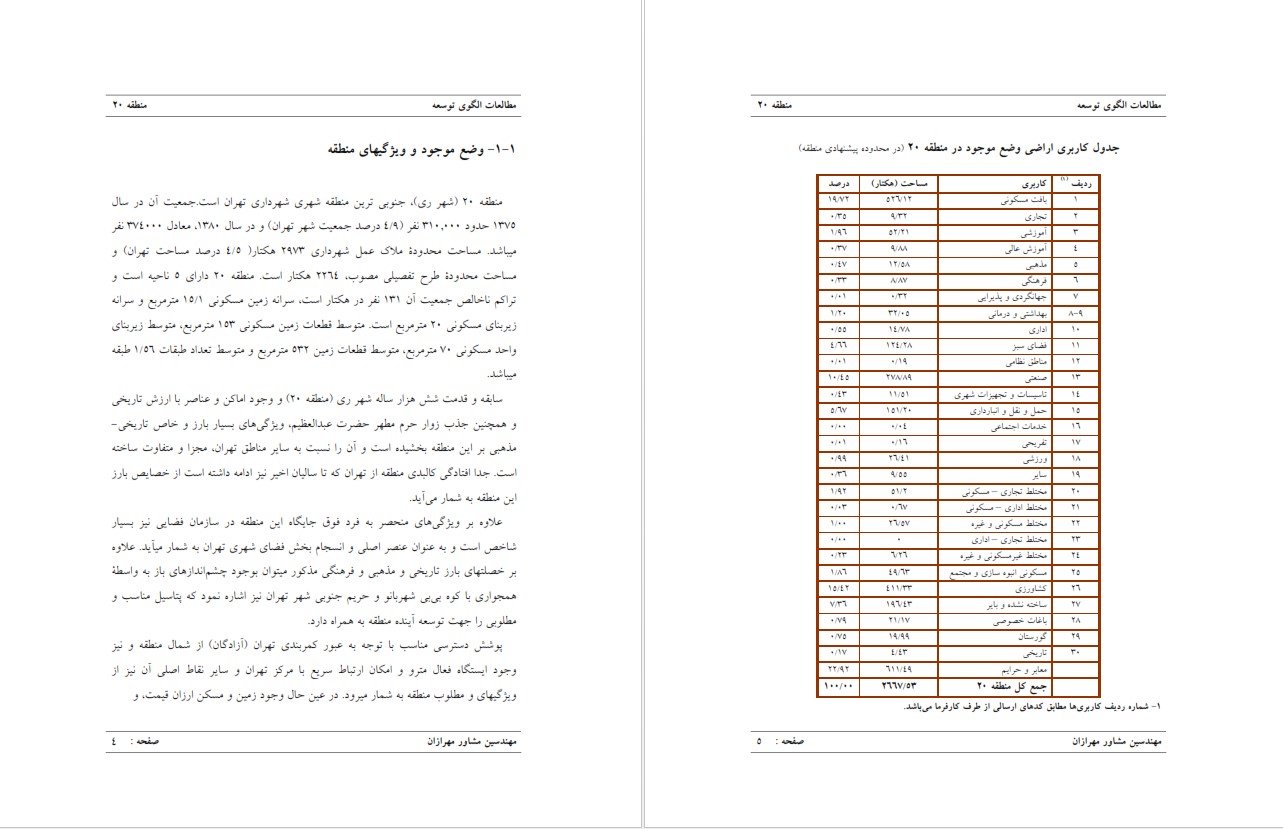 مطالعات الگوی توسعه منطقه ۲۰
۱-۱- وضع موجود و ویژگیهای منطقه
منطقه ۲۰ (شهر ری)، جنوبی ترین منطقه شهری شهرداری تهران است.جمعیت آن در سال
۱۳۷۵ حدود ۳۱۰،۰۰۰ نفر (۴/۹ درصد جمعیت شهر تهران) و در سال ۱۳۸۰، معادل ۳۷۴۰۰۰ نفر
میباشد. مساحت محدودۀ ملاک عمل شهرداری ۲۹۷۳ هکتار( ۴/۵ درصد مساحت تهران) و
مساحت محدودۀ طرح تفصیلی مصوب، ۲۲۶۴ هکتار است. منطقه ۲۰ دارای ۵ ناحیه است و
تراکم ناخالص جمعیت آن ۱۳۱ نفر در هکتار است، سرانه زمین مسکونی ۱۵/۱ مترمربع و سرانه
زیربنای مسکونی ۲۰ مترمربع است. متوسط قطعات زمین مسکونی ۱۵۳ مترمربع، متوسط زیربنای
واحد مسکونی ۷۰ مترمربع، متوسط قطعات زمین ۵۳۲ مترمربع و متوسط تعداد طبقات ۱/۵۶ طبقه
میباشد.
سابقه و قدمت شش هزار ساله شهر ری (منطقه ۲۰) و وجود اماکن و عناصر با ارزش تاریخی
و همچنین جذب زوار حرم مطهر حضرت عبدالعظیم، ویژگی‌های بسیار بارز و خاص تاریخی-
مذهبی بر این منطقه بخشیده است و آن را نسبت به سایر مناطق تهران، مجزا و متفاوت ساخته
است. جدا افتادگی کالبدی منطقه از تهران که تا سالیان اخیر نیز ادامه داشته است از خصایص بارز
این منطقه به شمار می‌آید.
علاوه بر ویژگی‌های منحصر به فرد فوق جایگاه این منطقه در سازمان فضایی نیز بسیار
شاخص است و به عنوان عنصر اصلی و انسجام بخش فضای شهری تهران به شمار میآید. علاوه
بر خصلتهای بارز تاریخی و مذهبی و فرهنگی مذکور میتوان بوجود چشم‌اندازهای باز به واسطۀ
همجواری با کوه بی‌بی شهربانو و حریم جنوبی شهر تهران نیز اشاره نمود که پتاسیل مناسب و
مطلوبی را جهت توسعه آینده منطقه به همراه دارد.
پوشش دسترسی مناسب با توجه به عبور کمربندی تهران (آزادگان) از شمال منطقه و نیز
وجود ایستگاه فعال مترو و امکان ارتباط سریع با مرکز تهران و سایر نقاط اصلی آن نیز از
ویژگیهای و مطلوب منطقه به شمار میرود. در عین حال وجود زمین و مسکن ارزان قیمت، و
مهندسین مشاور مهرازان صفحه : ۴
مطالعات الگوی توسعه منطقه ۲۰
جدول کاربری اراضی وضع موجود در منطقه ۲۰ (در محدوده پیشنهادی منطقه)
ردیف (۱) کاربری مساحت (هکتار) درصد
۱ بافت مسکونی ۵۲۶/۱۲ ۱۹/۷۲
۲ تجاری ۹/۳۲ ۰/۳۵
۳ آموزشی ۵۲/۲۱ ۱/۹۶
۴ آموزش عالی ۹/۸۸ ۰/۳۷
۵ مذهبی ۱۲/۵۸ ۰/۴۷
۶ فرهنگی ۸/۸۷ ۰/۳۳
۷ جهانگردی و پذیرایی ۰/۳۲ ۰/۰۱
۸-۹ بهداشتی و درمانی ۳۲/۰۵ ۱/۲۰
۱۰ اداری ۱۴/۷۸ ۰/۵۵
۱۱ فضای سبز ۱۲۴/۲۸ ۴/۶۶
۱۲ مناطق نظامی ۰/۱۹ ۰/۰۱
۱۳ صنعتی ۲۷۸/۸۹ ۱۰/۴۵
۱۴ تاسیسات و تجهیزات شهری ۱۱/۵۱ ۰/۴۳
۱۵ حمل و نقل و انبارداری ۱۵۱/۲۰ ۵/۶۷
۱۶ خدمات اجتماعی ۰/۰۴ ۰/۰۰
۱۷ تفریحی ۰/۱۶ ۰/۰۱
۱۸ ورزشی ۲۶/۴۱ ۰/۹۹
۱۹ سایر ۹/۵۵ ۰/۳۶
۲۰ مختلط تجاری – مسکونی ۵۱/۲ ۱/۹۲
۲۱ مختلط اداری – مسکونی ۰/۶۷ ۰/۰۳
۲۲ مختلط مسکونی و غیره ۲۶/۵۷ ۱/۰۰
۲۳ مختلط تجاری – اداری ۰ ۰/۰۰
۲۴ مختلط غیرمسکونی و غیره ۶/۲۶ ۰/۲۳
۲۵ مسکونی انبوه سازی و مجتمع ۴۹/۶۳ ۱/۸۶
۲۶ کشاورزی ۴۱۱/۳۳ ۱۵/۴۲
۲۷ ساخته نشده و بایر ۱۹۶/۴۳ ۷/۳۶
۲۸ باغات خصوصی ۲۱/۱۷ ۰/۷۹
۲۹ گورستان ۱۹/۹۹ ۰/۷۵
۳۰ تاریخی ۴/۴۳ ۰/۱۷
معابر و حرایم ۶۱۱/۴۹ ۲۲/۹۲
جمع کل منطقه ۲۰ ۲۶۶۷/۵۳ ۱۰۰/۰۰
۱- شماره ردیف کاربری‌ها مطابق کدهای ارسالی از طرف کارفرما می‌باشد.
مهندسین مشاور مهرازان صفحه : ۵